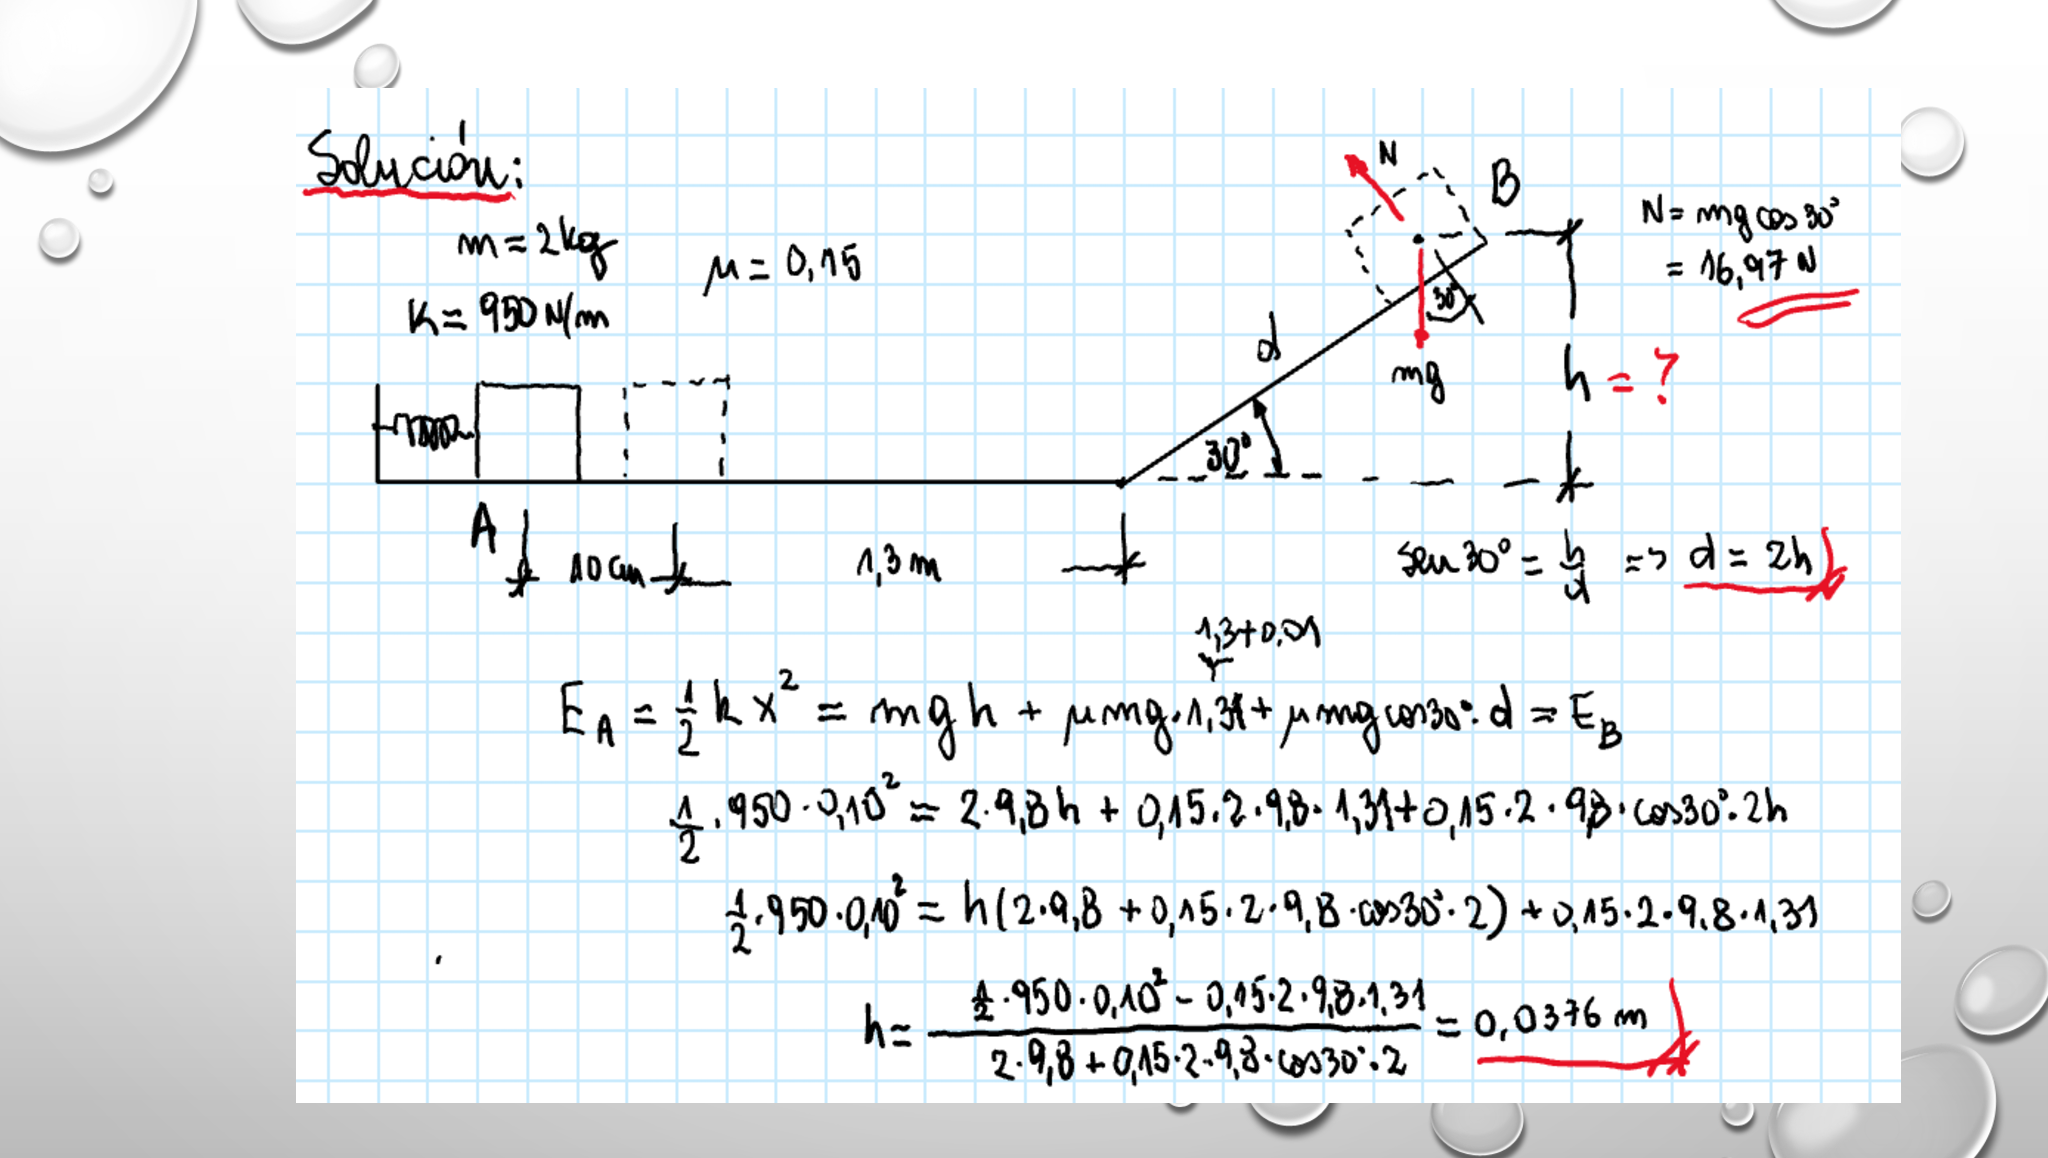 Solución:
m = 2 kg
μ = 0,15
K = 950 N/m
N
B
N = mg cos 30°
= 16,97 N
30°
d
mg
h = ?
30°
A
10 cm
1,3 m
sen 30° = h/d => d = 2h
1,3+0,01
E_A = 1/2 k x² = mgh + μmg·1,31 + μmg cos30°·d = E_B
1/2 · 950 · 0,10² = 2·9,8h + 0,15·2·9,8·1,31 + 0,15·2·9,8·cos30°·2h
1/2 · 950 · 0,10² = h(2·9,8 + 0,15·2·9,8·cos30°·2) + 0,15·2·9,8·1,31
h = (1/2 · 950 · 0,10² − 0,15·2·9,8·1,31) / (2·9,8 + 0,15·2·9,8·cos30°·2) = 0,0376 m